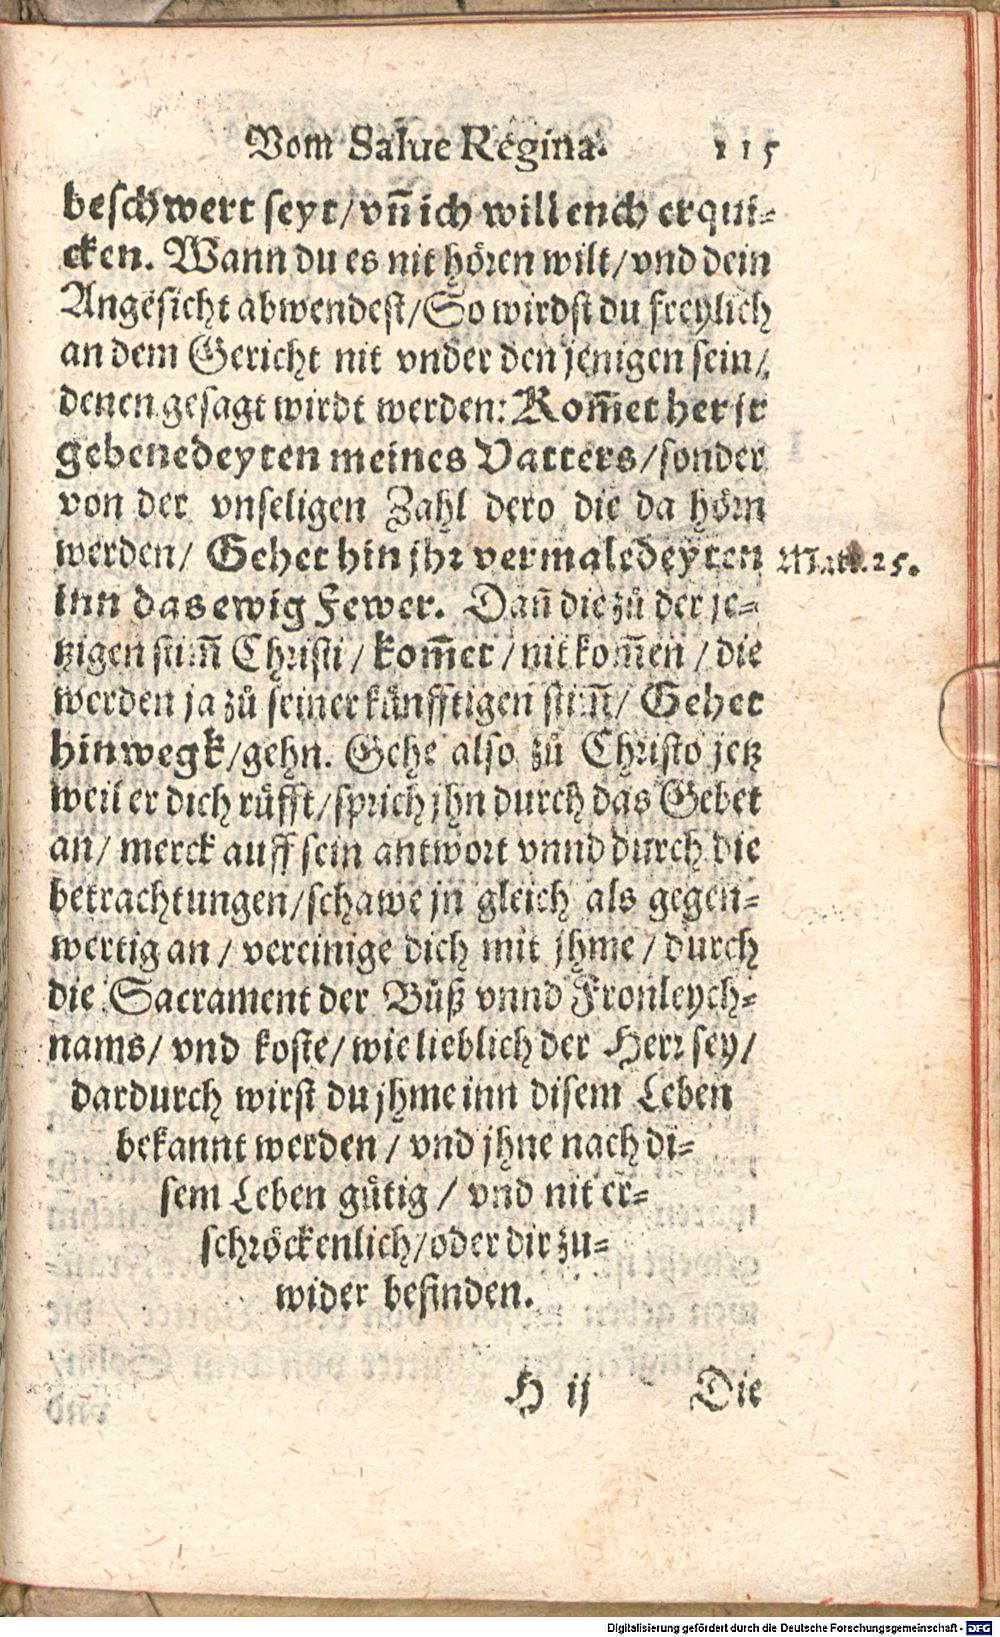 Vom Salue Regina. 115
beschwert seyt/vñ ich will euch erqui-
cken. Wann du es nit hören wilt/vnd dein
Angesicht abwendest/So wirdst du freylich
an dem Gericht nit vnder den jenigen sein/
denen gesagt wirdt werden: Kom̃et her jr
gebenedeyten meines Vatters/sonder
von der vnseligen Zahl dero die da hörn
werden/ Gehet hin jhr vermaledeyten
inn das ewig Fewer. Dañ die zů der je-
tzigen stim̃ Christi/ kom̃et/nit kom̃en/die
werden ja zů seiner künfftigen stim̃/ Gehet
hinwegk/gehn. Gehe also zů Christo jetz
weil er dich rüfft/sprich jhn durch das Gebet
an/ merck auff sein antwort vnnd durch die
betrachtungen/schawe jn gleich als gegen-
wertig an/ vereinige dich mit jhme/ durch
die Sacrament der Bůß vnnd Fronleych-
nams/ vnd koste/ wie lieblich der Herr sey/
dardurch wirst du jhme inn disem Leben
bekannt werden/ vnd jhne nach di-
sem Leben gütig/ vnd nit er-
schröckenlich/oder dir zu-
wider befinden.
Matt. 25.
H ij Die
Digitalisierung gefördert durch die Deutsche Forschungsgemeinschaft - DFG